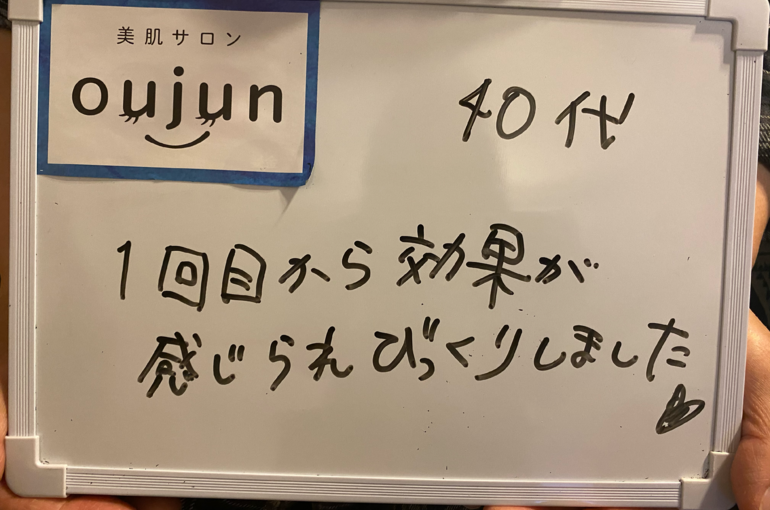 美肌サロン
oujun
40代
1回目から効果が
感じられびっくりしました